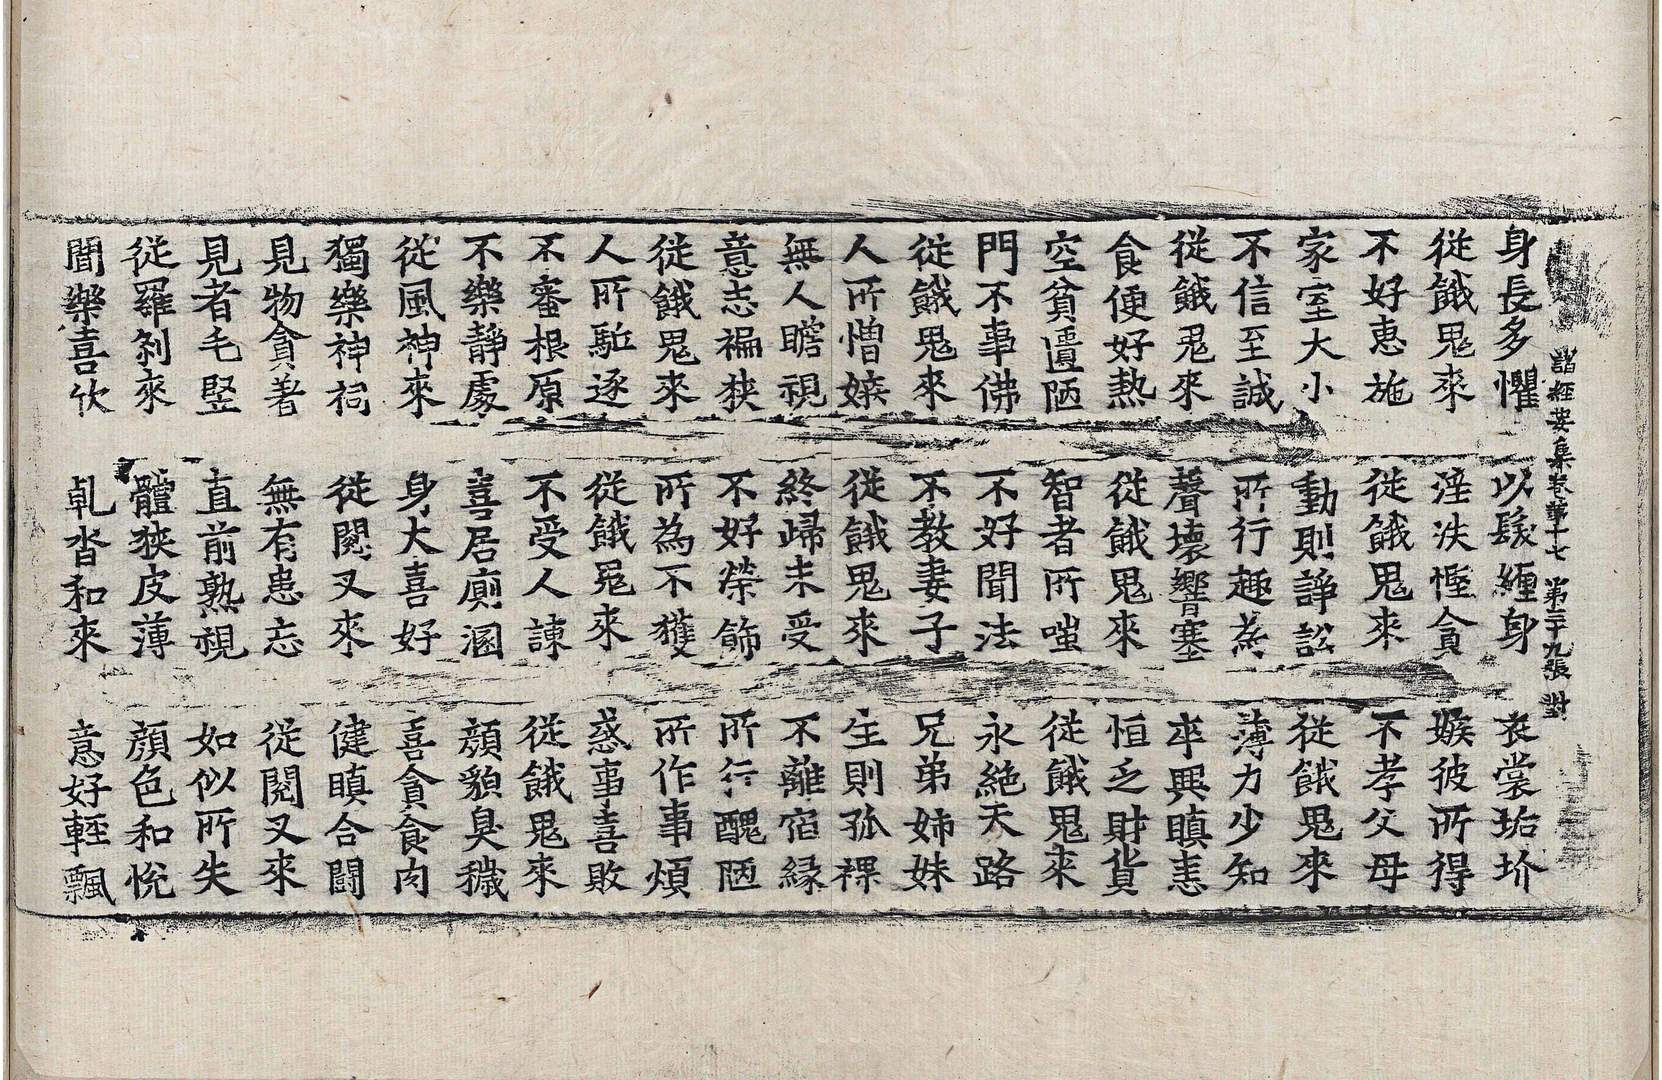 諸經要集卷第十七 第二十九張 對
身長多懼 以髮纏身 衣裳垢圿
從餓鬼來 婬泆慳貪 嫉彼所得
不好惠施 從餓鬼來 不孝父母
家室大小 動則諍訟 從餓鬼來
不信至誠 所行趣為 薄力少知
從餓鬼來 聲壞響塞 卒興瞋恚
食便好熱 從餓鬼來 恒乏財貨
空貧匱陋 智者所嗤 從餓鬼來
門不事佛 不好聞法 永絕天路
從餓鬼來 不教妻子 兄弟姉妹
人所憎嫉 從餓鬼來 生則孤裸
無人瞻視 終歸未受 不離宿緣
意志褊狹 不好榮飾 所行醜陋
從餓鬼來 所為不獲 所作事煩
人所駈逐 從餓鬼來 惑事喜敗
不審根原 不受人諫 從餓鬼來
不樂靜處 喜居廁溷 顏貌臭穢
從風神來 身大喜好 喜貪食肉
獨樂神祠 從閱叉來 健瞋合鬪
見物貪著 無有患忘 從閱叉來
見者毛竪 直前熟視 如似所失
從羅剎來 體狹皮薄 顏色和悅
聞樂喜欣 乹沓和來 意好輕飄